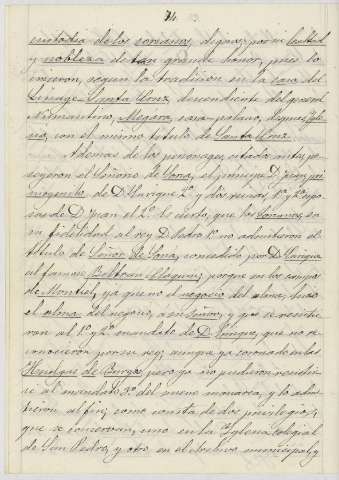 74
custodia de los sorianos, dignos, por su lealtad
y nobleza de tan grande honor, pues lo
hicieron, segun la tradicion en la casa del
Linage Santa Cruz descendiente del general
Numantino, Megara, casa palacio, despues Igle
sia, con el mismo titulo de Santa Cruz
Ademas de los personages, citados antes, po-
seyeron el Señorio de Soria, el principe D. Juan, pri
mogenito de D. Enrique 2º, y dos reinas, 1ª y 2ª espo-
sas de D. Juan el 1º. Es cierto, que los Sorianos, en
su fidelidad al rey D. Pedro 1º no admitieron el
titulo de Señor de Soria, concedido por D. Enrique
al famoso Beltran Claquin; porque en los campos
de Montiel, ya que no el negocio del alma, hizo
el alma del negocio, a su Señor; y que se resistie
ron al 1º y 2º mandato de D. Enrique, que no re
conocieron por su rey, aunque ya coronado en las
Huelgas de Burgos, pero ya no pudieron resistir
se al mandato 3º del nuevo monarca, y lo admi
tieron al fin; como consta de dos privilegios,
que se conservan, uno en la Iglesia colegial
de San Pedro, y otro en el archivo municipal, y